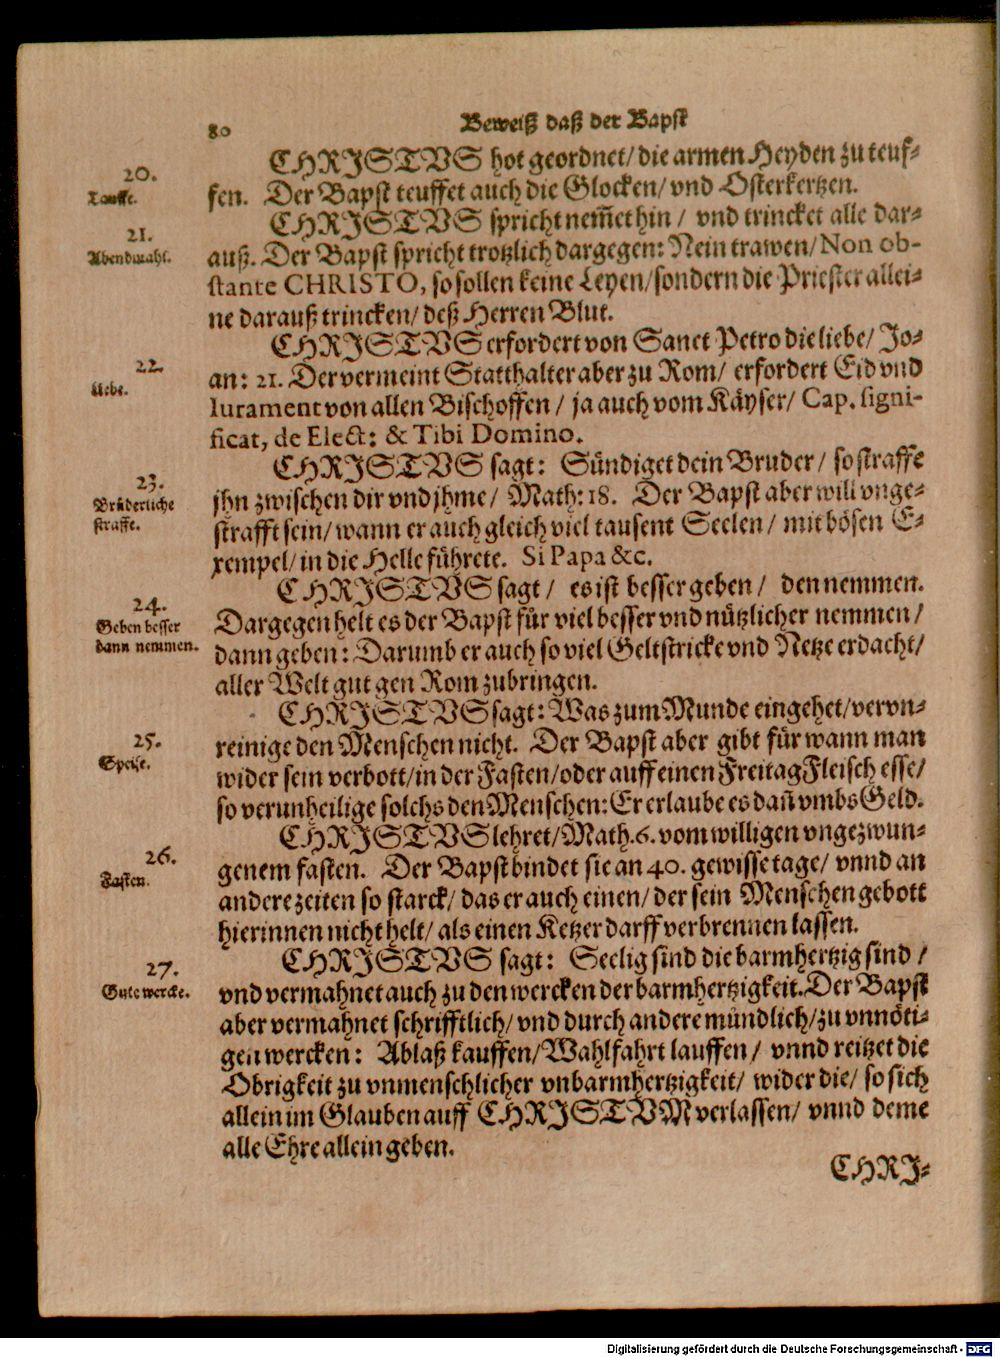 80
Beweiß daß der Bapst
20.
Tauffe.
CHRJSTVS hot geordnet/ die armen Heyden zu teuf-
fen. Der Bapst teuffet auch die Glocken/ vnd Osterkertzen.
21.
Abendmahl.
CHRJSTVS spricht nem̄et hin / vnd trincket alle dar-
auß. Der Bapst spricht trotzlich dargegen: Nein trawen/ Non ob-
stante CHRISTO, so sollen keine Leyen/ sondern die Priester allei-
ne darauß trincken/ deß Herren Blut.
22.
Liebe.
CHRJSTVS erfordert von Sanct Petro die liebe/ Jo-
an: 21. Der vermeint Statthalter aber zu Rom/ erfordert Eid vnd
Iurament von allen Bischoffen / ja auch vom Käyser/ Cap. signi-
ficat, de Elect: & Tibi Domino.
23.
Brüderliche
straffe.
CHRJSTVS sagt: Sündiget dein Bruder/ so straffe
jhn zwischen dir vnd jhme/ Math: 18. Der Bapst aber will vnge-
strafft sein/ wann er auch gleich viel tausent Seelen/ mit bösen E-
xempel/ in die Helle führete. Si Papa &c.
24.
Geben besser
dann nemmen.
CHRJSTVS sagt/ es ist besser geben/ den nemmen.
Dargegen helt es der Bapst für viel besser vnd nützlicher nemmen/
dann geben: Darumb er auch so viel Geltstricke vnd Netze erdacht/
aller Welt gut gen Rom zubringen.
25.
Speise.
CHRJSTVS sagt: Was zum Munde eingehet/ vervn-
reinige den Menschen nicht. Der Bapst aber gibt für wann man
wider sein verbott/ in der Fasten/ oder auff einen Freitag Fleisch esse/
so verunheilige solchs den Menschen: Er erlaube es dañ vmbs Geld.
26.
Fasten.
CHRJSTVS lehret/ Math. 6. vom willigen vngezwun-
genem fasten. Der Bapst bindet sie an 40. gewisse tage/ vnnd an
andere zeiten so starck/ das er auch einen/ der sein Menschen gebott
hierinnen nicht helt/ als einen Ketzer darff verbrennen lassen.
27.
Gute wercke.
CHRJSTVS sagt: Seelig sind die barmhertzig sind /
vnd vermahnet auch zu den wercken der barmhertzigkeit. Der Bapst
aber vermahnet schrifftlich/ vnd durch andere mündlich/ zu vnnöti-
gen wercken: Ablaß kauffen/ Wahlfahrt lauffen/ vnnd reitzet die
Obrigkeit zu vnmenschlicher vnbarmhertzigkeit/ wider die/ so sich
allein im Glauben auff CHRJSTVM verlassen/ vnnd deme
alle Ehre allein geben.
CHRJ-
Digitalisierung gefördert durch die Deutsche Forschungsgemeinschaft - DFG